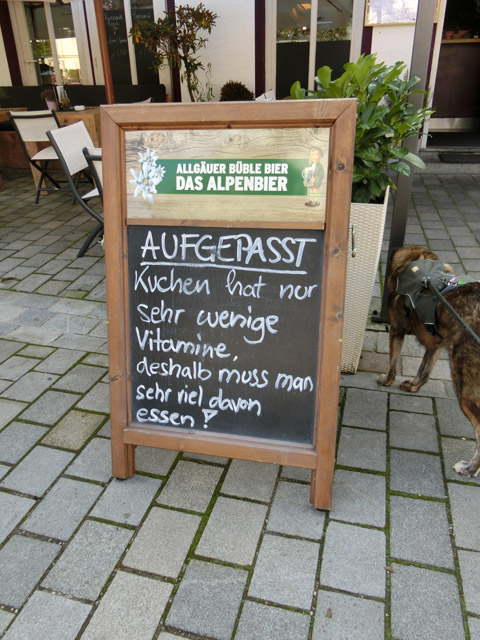 ALLGÄUER BÜBLE BIER
DAS ALPENBIER
AUFGEPASST
Kuchen hat nur
sehr wenige
Vitamine,
deshalb muss man
sehr viel davon
essen!